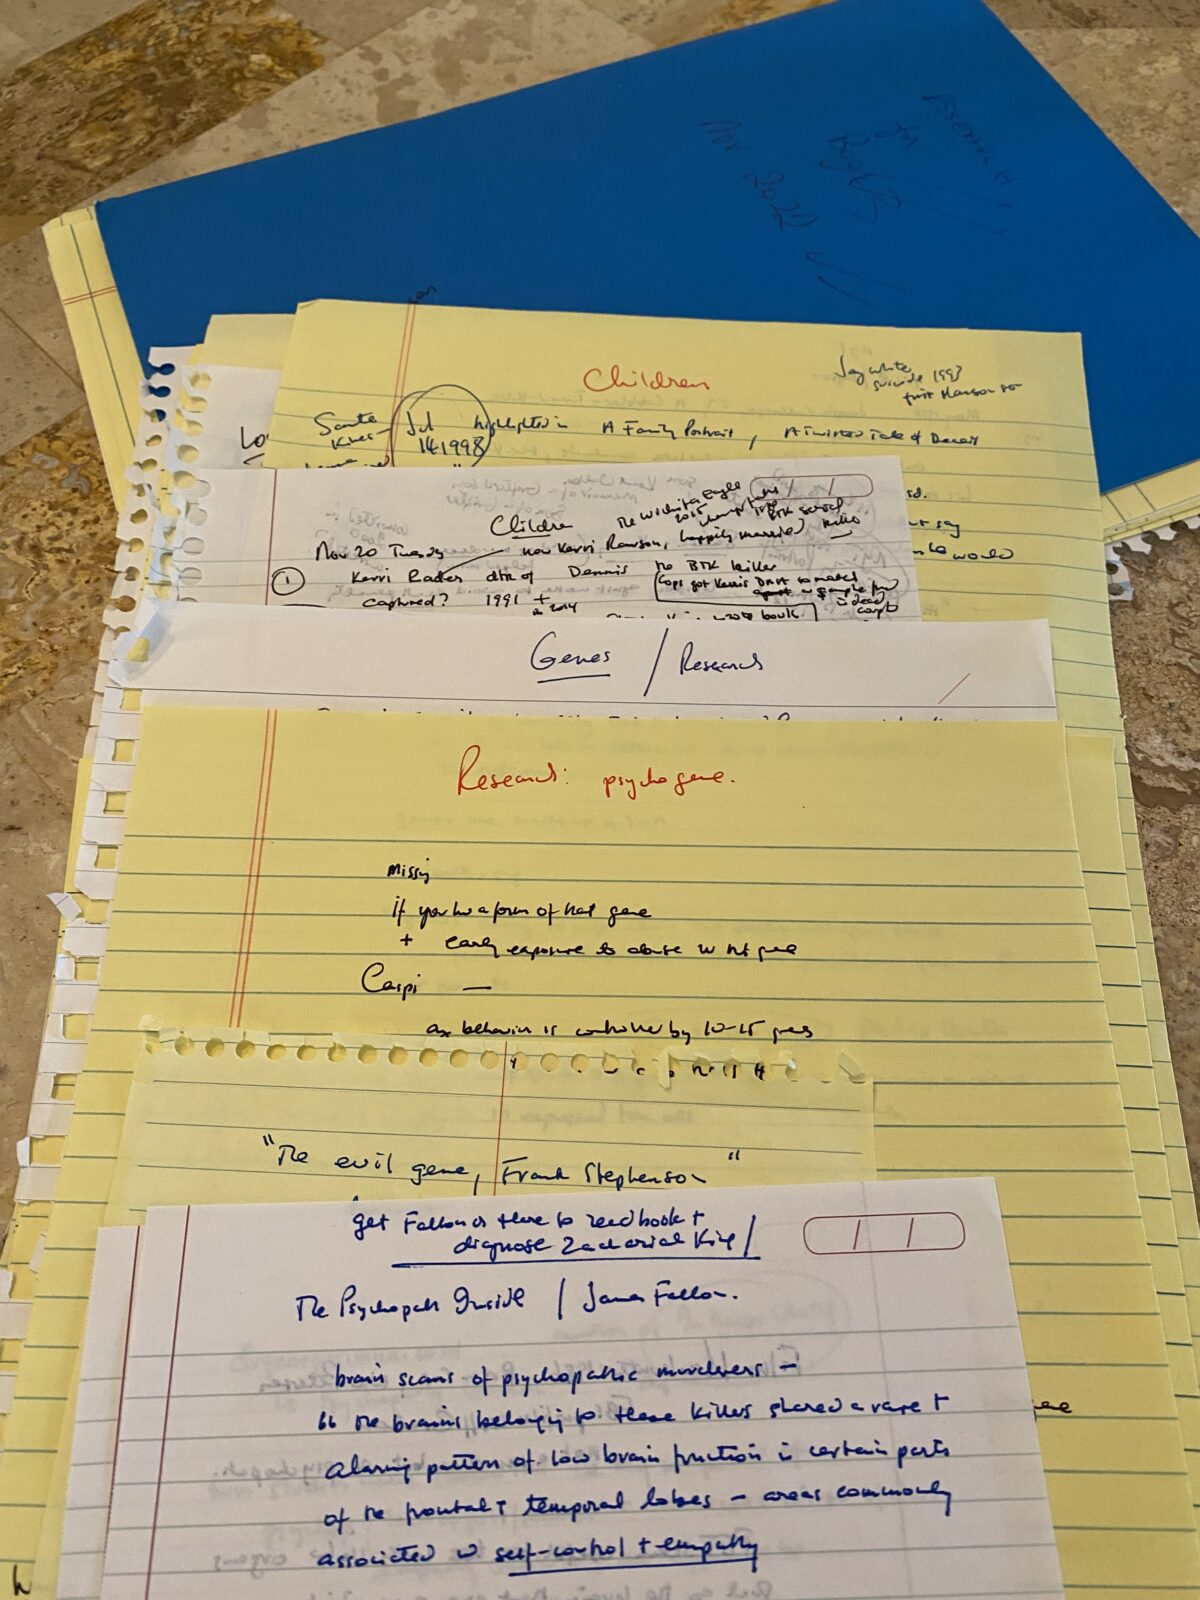 Nov. 2022
Children
Jay White
suicide 1993
first Manson son
Sante
Kimes
Jul
14 1998
highlighted in A Family Portrait, A Twisted Tale of Deceit
Lo
sd.
say
world
Children
The Wichita Eagle
2015
BTK
Nov 20 Tuesday now Kerri Rawson, happily married
① Kerri Rader dtr of Dennis the BTK killer
captured? 1991 +
in 2014
Cops got Kerri's DNA to match
wrote book
Genes / Research
Research: psycho gene.
missing
if you have a form of that gene
+ early exposure to abuse w that gene
Caspi —
behavior is controlled by 10-15 genes
"The evil gene, Frank Stephenson"
get Fallon or these to read book +
diagnose Zachariah King /
The Psychopath Inside / James Fallon.
brain scans of psychopathic murderers –
the brains belonging to these killers shared a rare +
alarming pattern of low brain function in certain parts
of the frontal + temporal lobes – areas commonly
associated w self-control + empathy